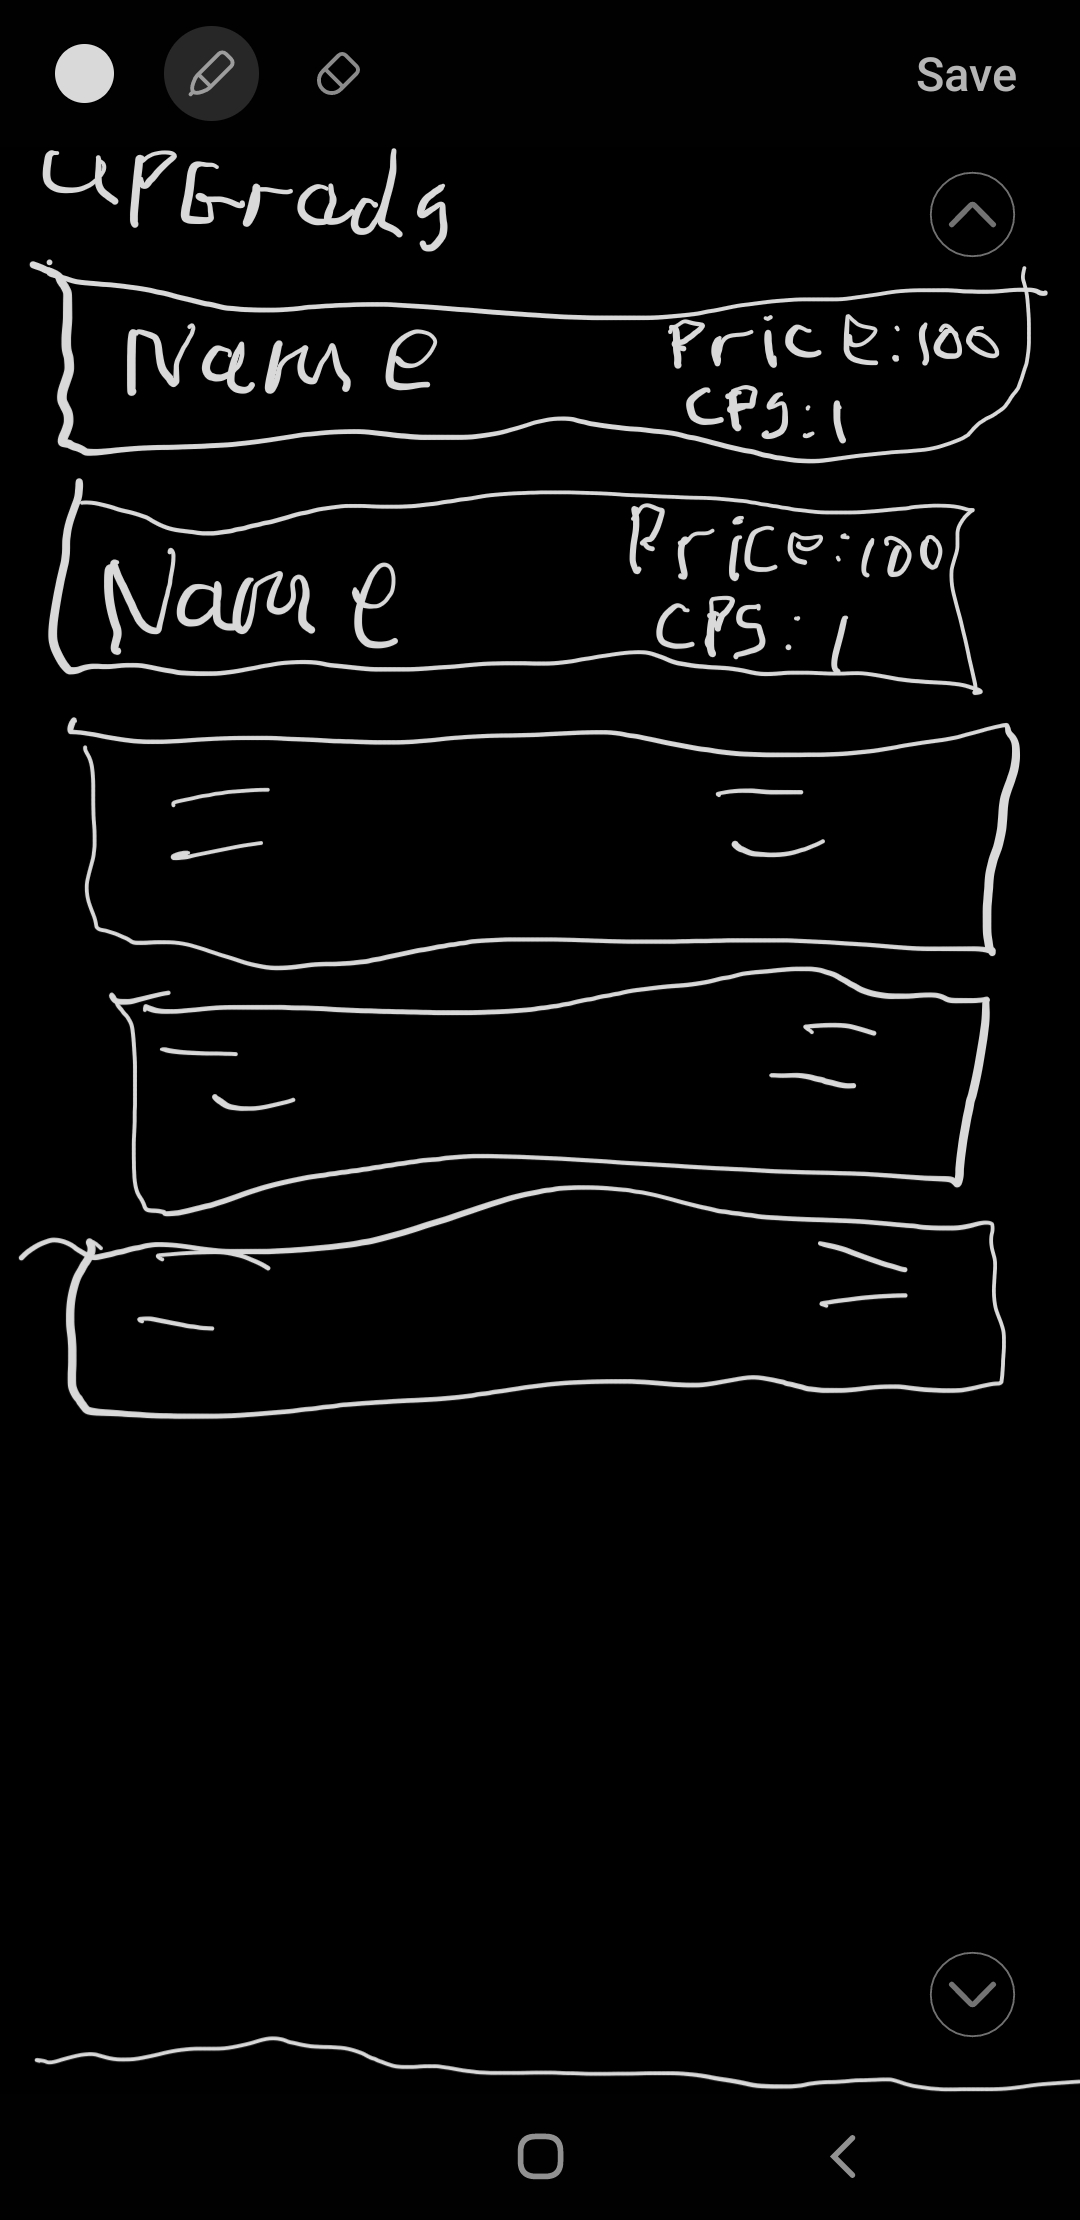 Save
UPGrads
Name
Price:100
CPS:1
Name
Price:100
CPS:1